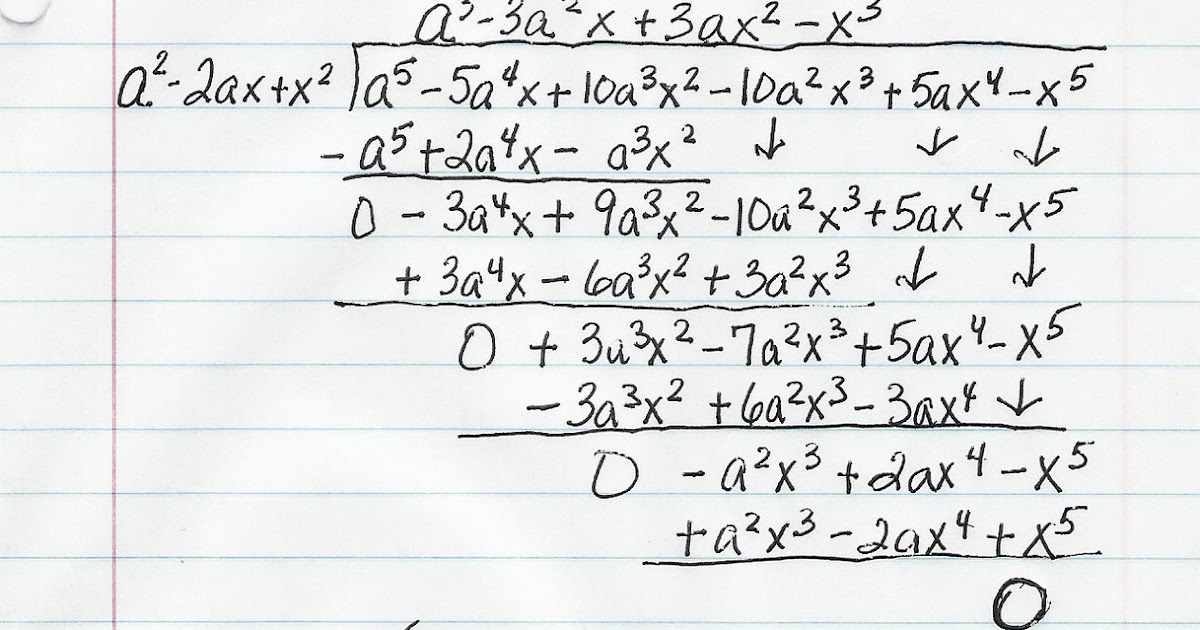 a³-3a²x+3ax²-x³
a²-2ax+x² ⟌ a⁵-5a⁴x+10a³x²-10a²x³+5ax⁴-x⁵
-a⁵+2a⁴x- a³x² ↓ ↓ ↓
0 - 3a⁴x+ 9a³x²-10a²x³+5ax⁴-x⁵
+ 3a⁴x- 6a³x²+3a²x³ ↓ ↓
0 + 3a³x²-7a²x³+5ax⁴-x⁵
-3a³x² +6a²x³-3ax⁴ ↓
0 -a²x³+2ax⁴-x⁵
+a²x³-2ax⁴+x⁵
0